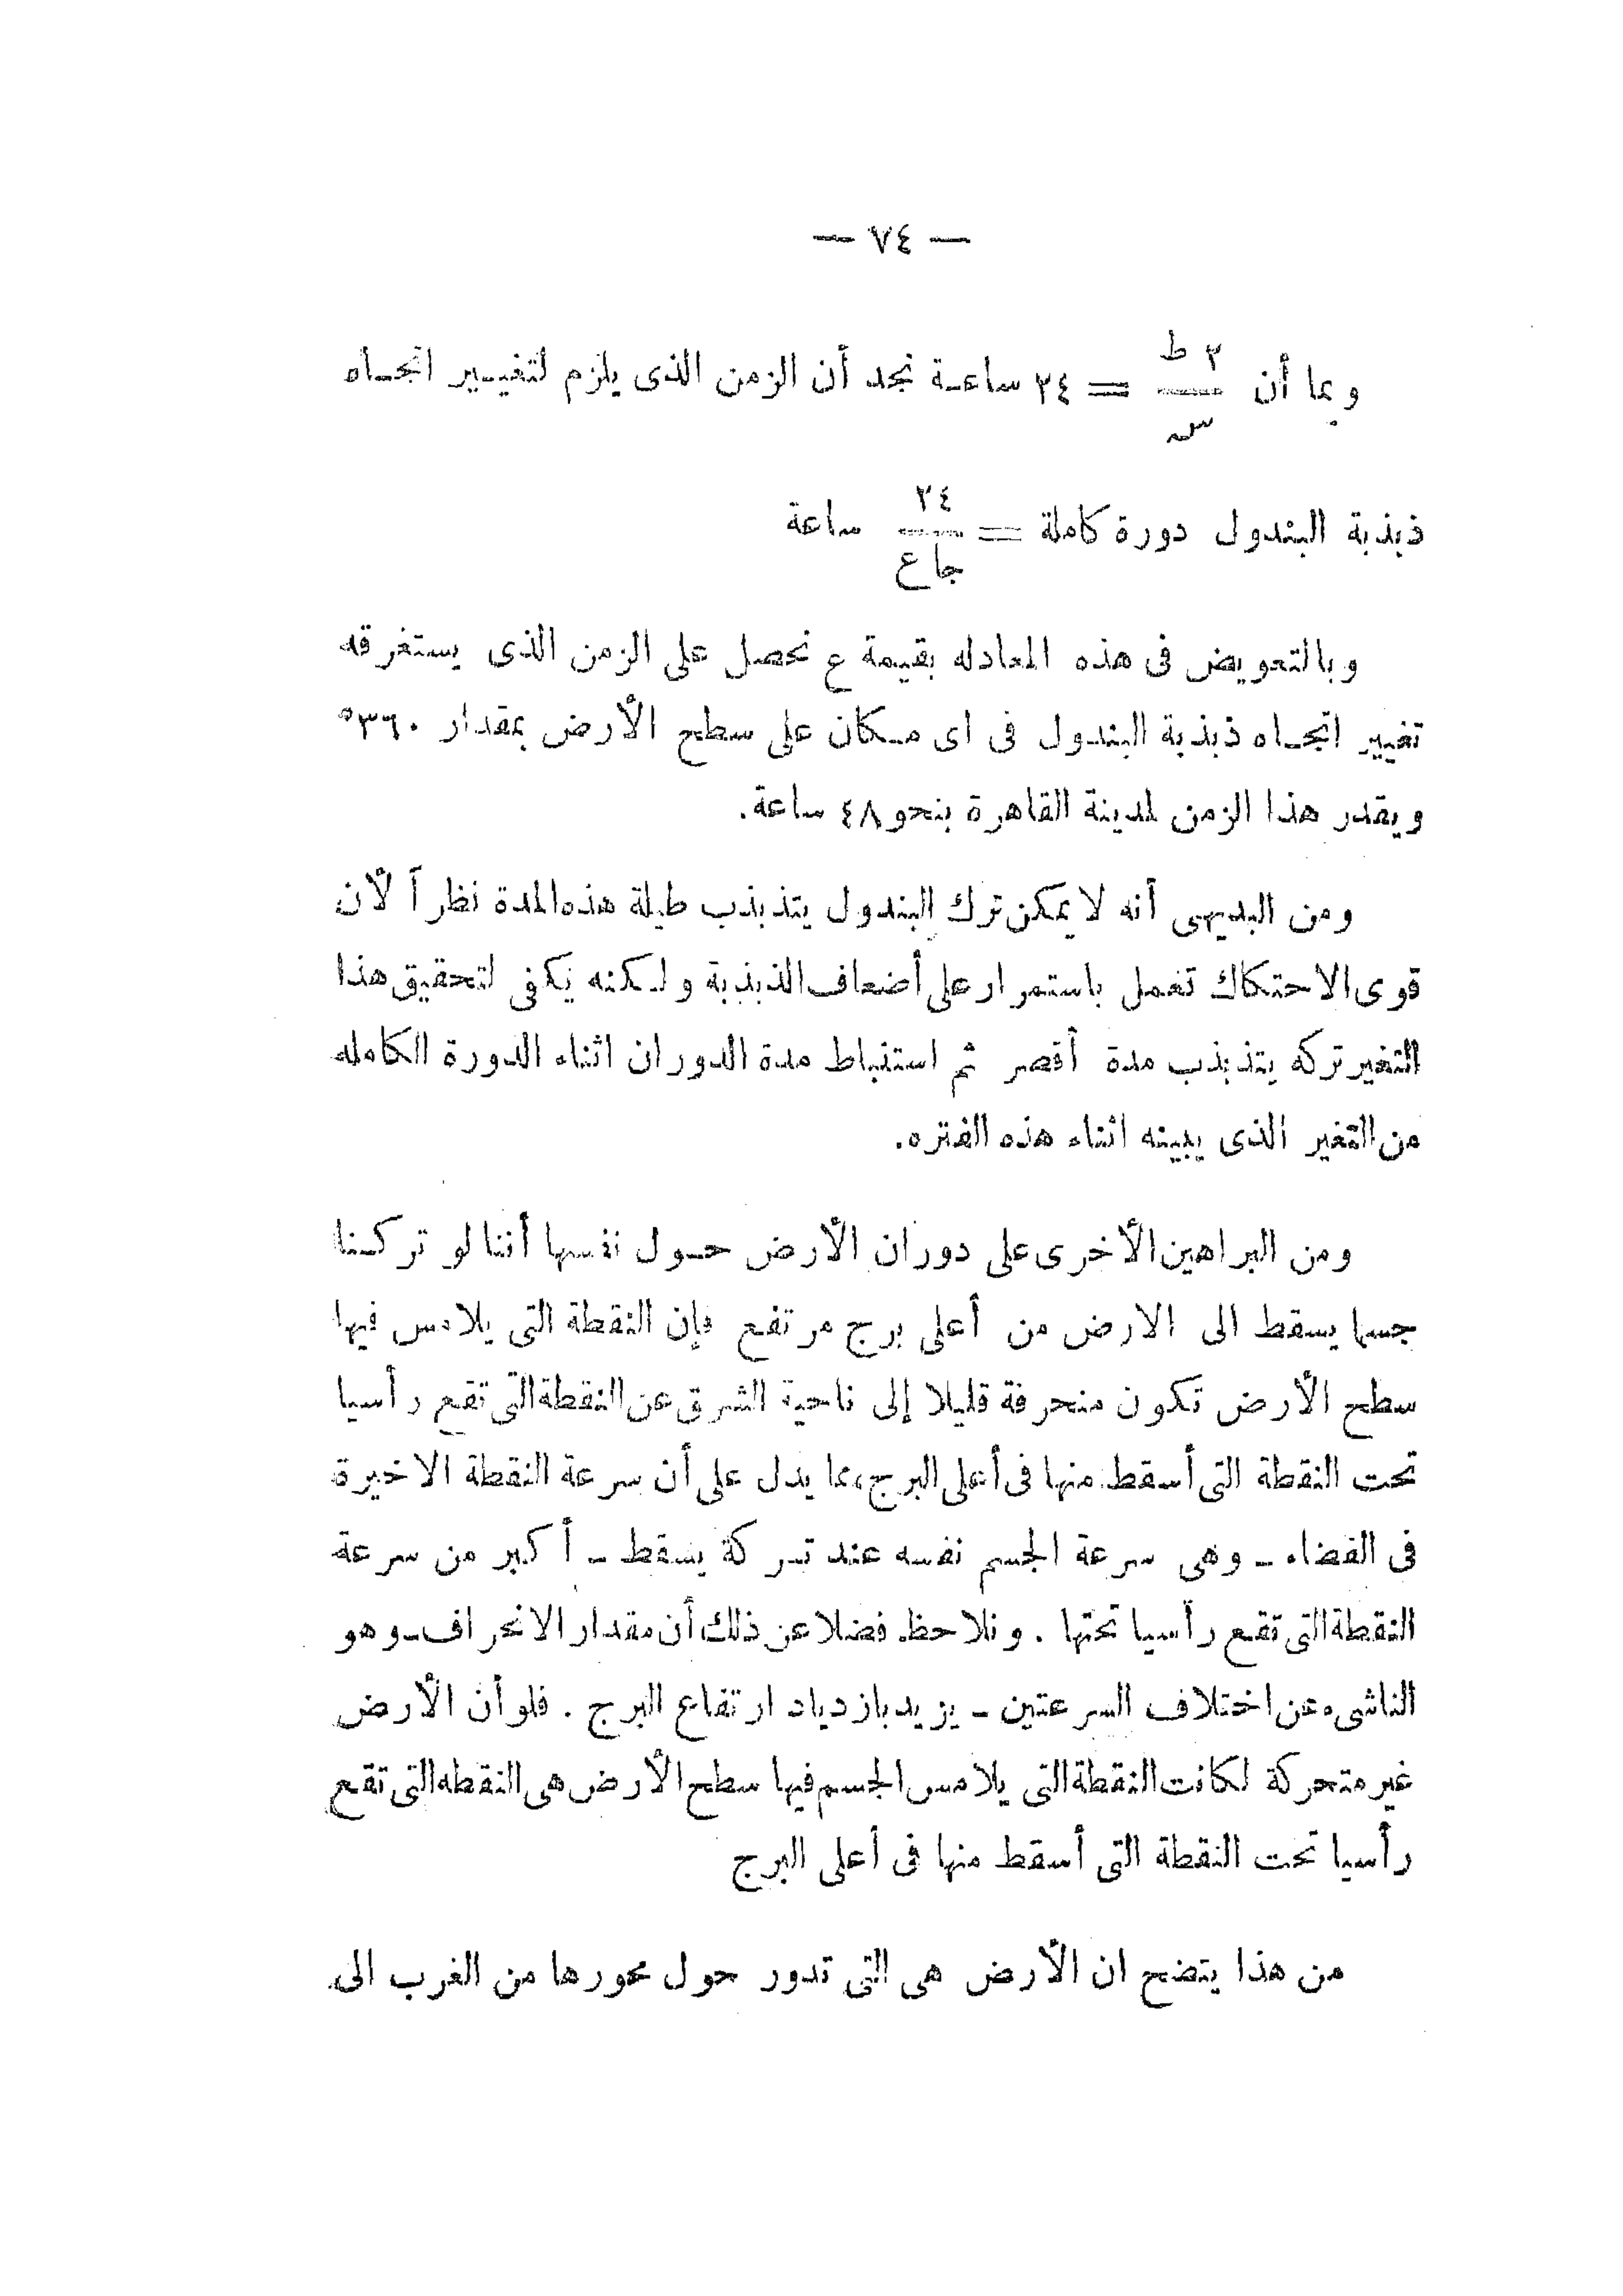 — ٧٤ —
وبما أن ٢ ط / س = ٢٤ ساعة نجد أن الزمن الذى يلزم لتغيير اتجاه
ذبذبة البندول دورة كاملة = ٢٤ / جا ع ساعة
وبالتعويض فى هذه المعادله بقيمة ع نحصل على الزمن الذى يستغرقه
تغيير اتجاه ذبذبة البندول فى اى مكان على سطح الأرض بمقدار ٣٦٠°
ويقدر هذا الزمن لمدينة القاهرة بنحو ٤٨ ساعة.
ومن البديهى أنه لا يمكن ترك البندول يتذبذب طيلة هذه المدة نظراً لأن
قوى الاحتكاك تعمل باستمرار على أضعاف الذبذبة ولكنه يكفى لتحقيق هذا
التغير تركه يتذبذب مدة أقصر ثم استنباط مدة الدوران اثناء الدورة الكامله
من التغير الذى يبينه اثناء هذه الفتره.
ومن البراهين الأخرى على دوران الأرض حول نفسها أننا لو تركنا
جسما يسقط الى الارض من أعلى برج مرتفع فإن النقطة التى يلامس فيها
سطح الأرض تكون منحرفة قليلا إلى ناحية الشرق عن النقطة التى تقع رأسيا
تحت النقطة التى أسقط منها فى أعلى البرج، مما يدل على أن سرعة النقطة الاخيرة
فى الفضاء ـ وهى سرعة الجسم نفسه عند تركة يسقط ـ أكبر من سرعة
النقطة التى تقع رأسيا تحتها . ونلاحظ فضلا عن ذلك أن مقدار الانحراف ـ وهو
الناشىء عن اختلاف السرعتين ـ يزيد بازدياد ارتفاع البرج . فلو أن الأرض
غير متحركة لكانت النقطة التى يلامس الجسم فيها سطح الأرض هى النقطه التى تقع
رأسيا تحت النقطة التى أسقط منها فى أعلى البرج
من هذا يتضح ان الأرض هى التى تدور حول محورها من الغرب الى